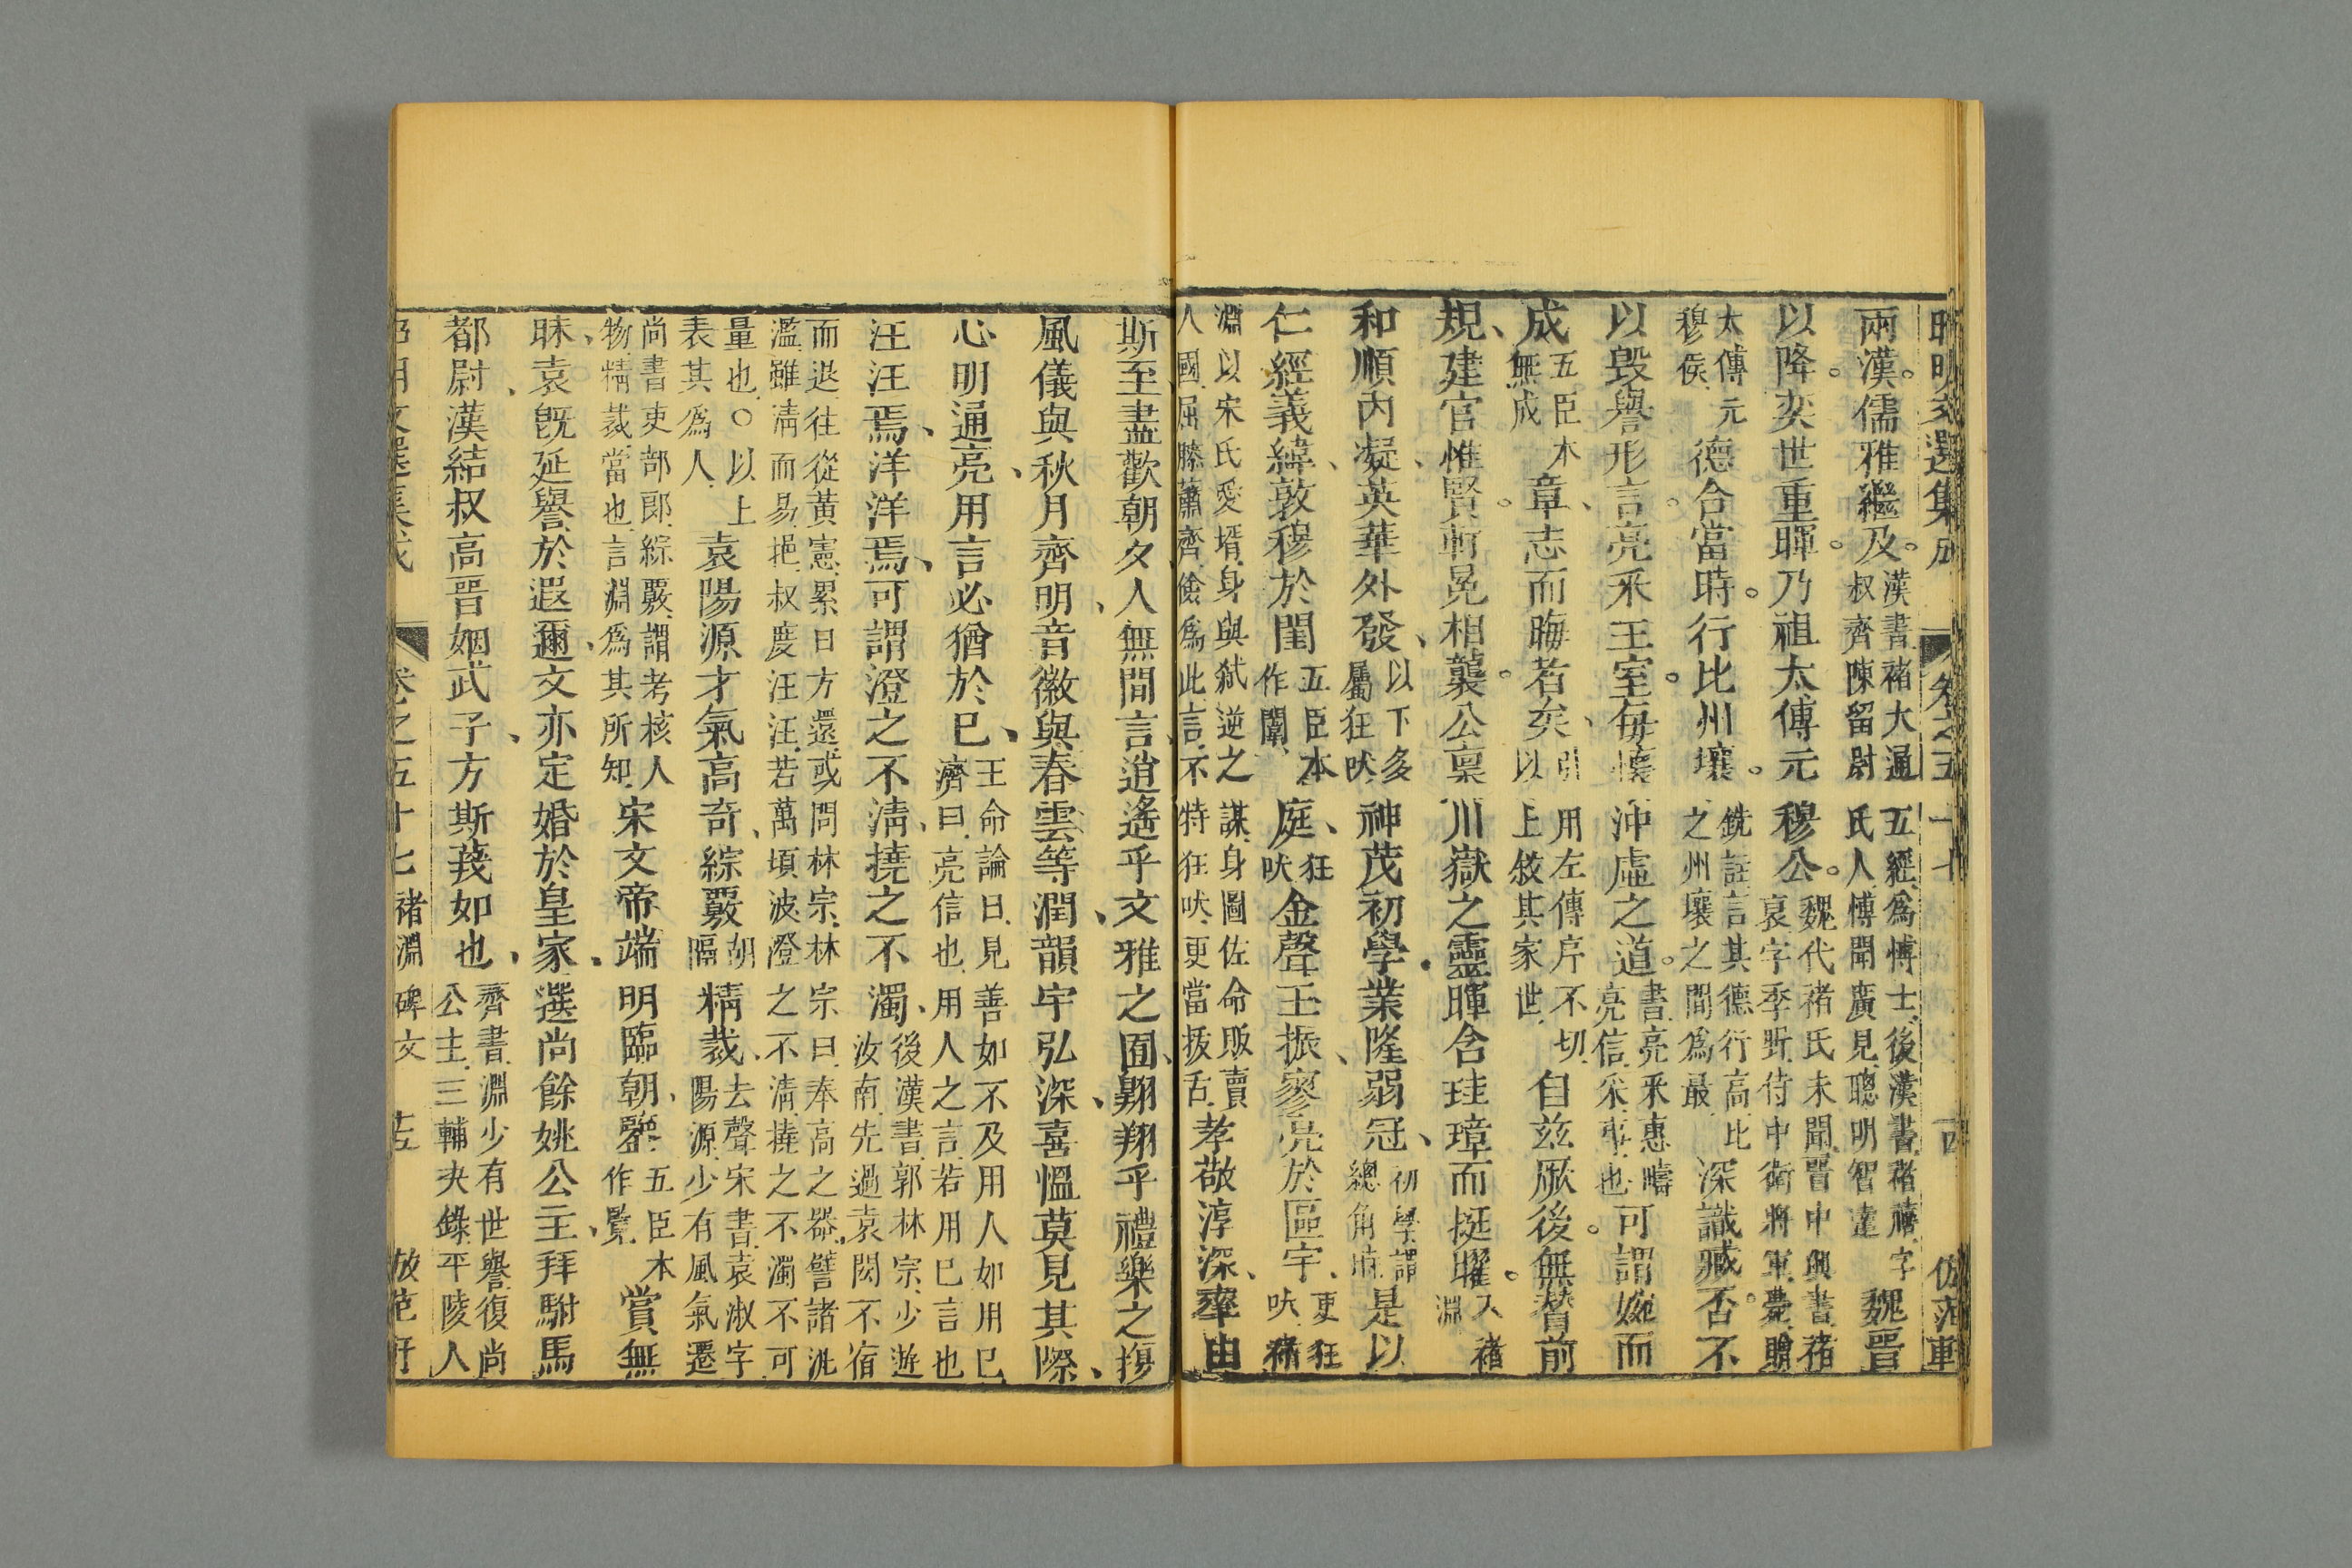 昭明文選集成 卷之五十七 古 倣范軒
兩漢。儒雅繼及。漢書褚大通五經爲博士後漢書褚禧字叔齊陳留尉氏人博聞廣見聰明智達魏晉
以降。奕世重暉。乃祖太傅元穆公。魏代褚氏未聞晉中興書褚裒字季野侍中衛將軍薨贈
太傅元穆侯德合當時。行比州壤。銑註言其德行高比之州壤之間爲最深識臧否。不
以毀譽形言。亮采王室。每懷沖虛之道。書亮采惠疇亮信采事也可謂婉而
成五臣本無成章、志而晦若矣、引以用左傳序不切上敘其家世自兹厥後。無替前
規、建官惟賢。軒冕相襲。公稟川嶽之靈暉含珪璋而挺曜。入褚淵
和順內凝、英華外發、以下多屬狂吠神茂初學。業隆弱冠、初學謂總角時是以
仁經義緯、敦穆於閨五臣本作闈、庭、狂吠金聲玉振、寥亮於區宇、更狂吠褚
淵以宋氏愛壻身與弑逆之謀身圖佐命販賣人國屈膝蕭齊儉爲此言不特狂吠更當拔舌孝敬淳深、率由
斯至盡歡朝夕人無間言、逍遙乎文雅之囿、翺翔乎禮樂之塲
風儀與秋月齊明、音徽與春雲等潤、韻宇弘深、喜慍莫見其際、
心明通亮、用言必猶於已、王命論曰見善如不及用人如用已濟曰亮信也用人之言若用已言也
汪汪焉、洋洋焉、可謂澄之不淸、撓之不濁、後漢書郭林宗少遊汝南先過袁閎不宿
而退往從黄憲累日方還或問林宗林宗曰奉高之器譬諸汎濫雖淸而易挹叔度汪汪若萬頃波澄之不淸撓之不濁不可
量也○以上表其爲人袁陽源才氣高奇、綜覈胡隔精裁、去聲宋書袁淑字陽源少有風氣遷
尚書吏部郎綜覈謂考核人物精裁當也言淵爲其所知宋文帝端明臨朝、鑒五臣本作覽賞無
昧、袁旣延譽於遐邇、文亦定婚於皇家、選尚餘姚公主、拜駙馬
都尉、漢結叔高晉姻武子、方斯蔑如也、齊書淵少有世譽復尚公主三輔決錄平陵人
昭明文選集成 卷之五十七 褚淵碑文 十五 倣范軒